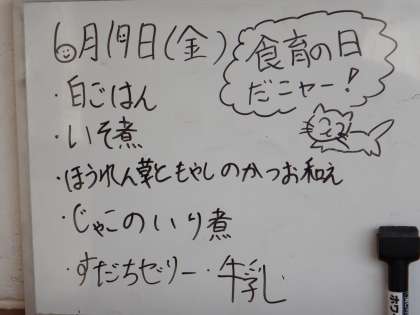 6月19日(金)
食育の日
だニャー!
・白ごはん
・いそ煮
・ほうれん草ともやしのかつお和え
・じゃこのいり煮
・すだちゼリー・牛乳
ホワ